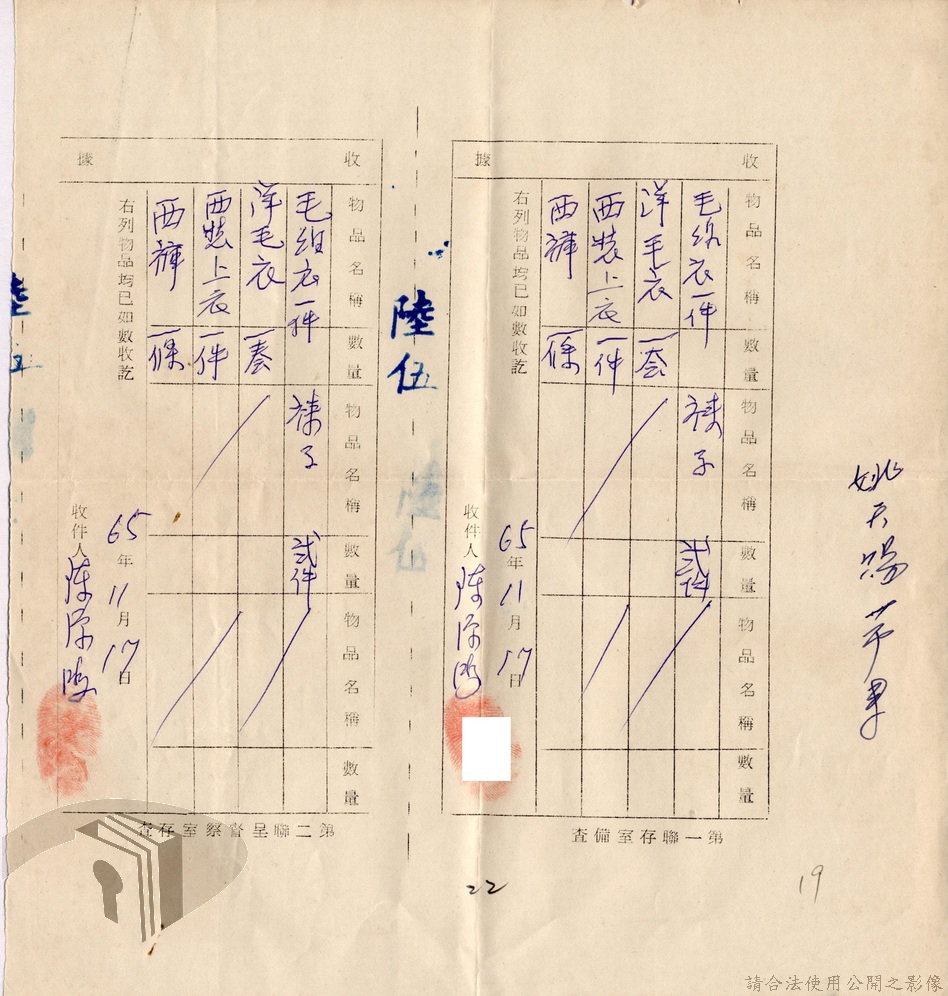 姚天賜 苹果
收據
物品名稱 數量 物品名稱 數量 物品名稱 數量
毛線衣一件 襪子 弍件
洋毛衣 一套
西裝上衣 一件
西褲 一條
右列物品均已如數收訖
65年11月17日
收件人
第一聯存室備查
陸伍
陸伍
收據
物品名稱 數量 物品名稱 數量 物品名稱 數量
毛線衣一件 襪子 弍件
洋毛衣 一套
西裝上衣 一件
西褲 一條
右列物品均已如數收訖
65年11月17日
收件人
第二聯呈督察室存查
陸伍
22
19
請合法使用公開之影像